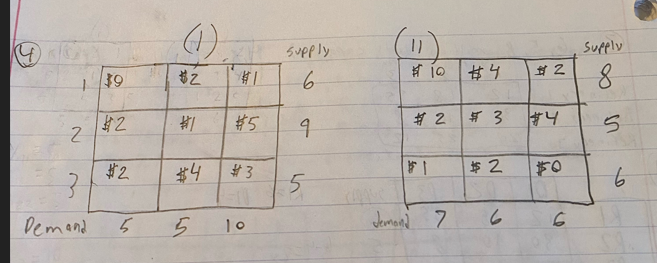 4 (I) (II)
supply supply
1 $0 $2 $1 6 $10 $4 $2 8
2 $2 $1 $5 9 $2 $3 $4 5
3 $2 $4 $3 5 $1 $2 $0 6
Demand 5 5 10 demand 7 6 6